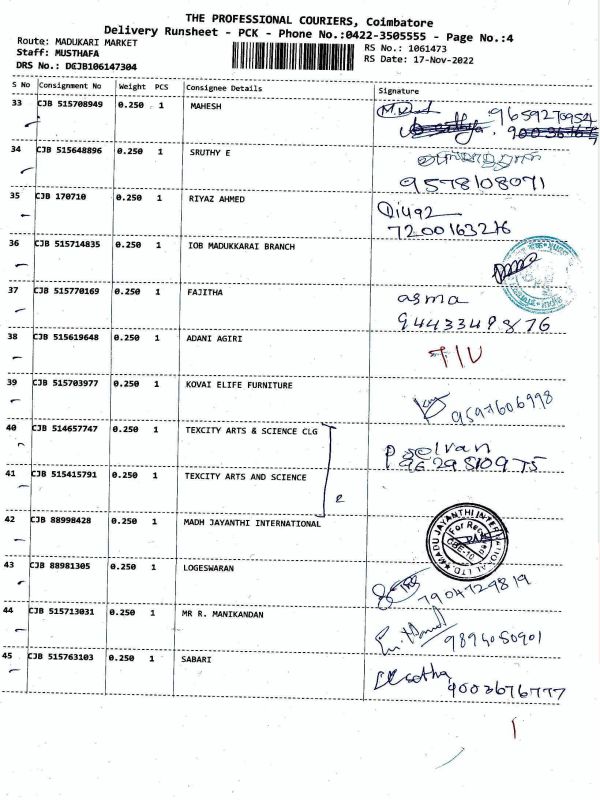 THE PROFESSIONAL COURIERS, Coimbatore
Delivery Runsheet - PCK - Phone No.:0422-3505555 - Page No.:4
Route: MADUKARI MARKET
RS No.: 1061473
Staff: MUSTHAFA
RS Date: 17-Nov-2022
DRS No.: DEJB106147304
S No Consignment No Weight PCS Consignee Details Signature
33 CJB 515708949 0.250 1 MAHESH
9659270954
34 CJB 515648896 0.250 1 SRUTHY E
9578108071
35 CJB 170710 0.250 1 RIYAZ AHMED
7200163276
36 CJB 515714835 0.250 1 IOB MADUKKARAI BRANCH
37 CJB 515770169 0.250 1 FAJITHA asma
9443349876
38 CJB 515619648 0.250 1 ADANI AGIRI
39 CJB 515703977 0.250 1 KOVAI ELIFE FURNITURE
9597606998
40 CJB 514657747 0.250 1 TEXCITY ARTS & SCIENCE CLG
9629810975
41 CJB 515415791 0.250 1 TEXCITY ARTS AND SCIENCE
42 CJB 88998428 0.250 1 MADH JAYANTHI INTERNATIONAL
MADU JAYANTHI INTERNATIONAL LTD
43 CJB 88981305 0.250 1 LOGESWARAN
7904729819
44 CJB 515713031 0.250 1 MR R. MANIKANDAN
9894050901
45 CJB 515763103 0.250 1 SABARI
9003676777